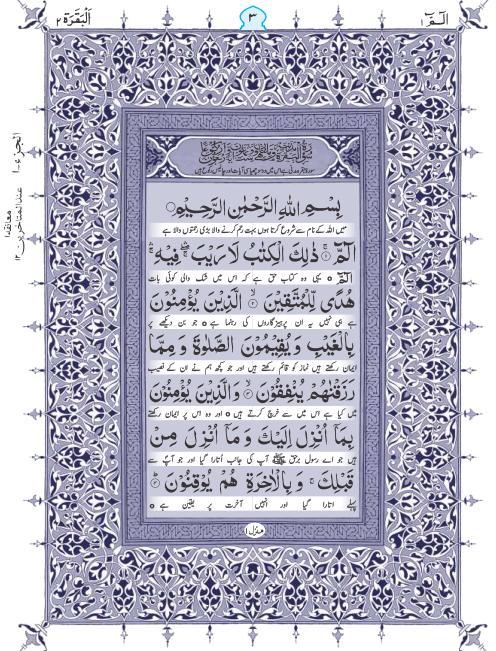 الٓمّٓ ١
٣
اَلْبَقَرَة ٢
الجزء ١
معانقة ١
عند المتاخرين ١٢
سورۂ بقرہ مدنی ہے اس میں دو سو چھیاسی آیات اور چالیس رکوع ہیں
بِسْمِ اللّٰهِ الرَّحْمٰنِ الرَّحِيْمِ
میں اللہ کے نام سے شروع کرتا ہوں بہت رحم کرنے والا بڑی رحمتوں والا ہے
الٓمّٓ ۚ۱ ذٰلِكَ الْكِتٰبُ لَا رَيْبَ ۛۖ فِيْهِ ۛۚ
الٓمّٓ ٥ یہی وہ کتاب حق ہے کہ اس میں شک والی کوئی بات
هُدًى لِّلْمُتَّقِيْنَ ۙ۲ الَّذِيْنَ يُؤْمِنُوْنَ
ہے ہی نہیں یہ ان پرہیزگاروں کی رہنما ہے ٥ جو بن دیکھے پر
بِالْغَيْبِ وَ يُقِيْمُوْنَ الصَّلٰوةَ وَ مِمَّا
ایمان رکھتے ہیں نماز کو قائم رکھتے ہیں اور جو کچھ ہم نے ان کے نصیب
رَزَقْنٰهُمْ يُنْفِقُوْنَ ۙ۳ وَ الَّذِيْنَ يُؤْمِنُوْنَ
میں کیا ہے اس میں سے خرچ کرتے ہیں ٥ اور وہ اس پر ایمان رکھتے
بِمَاۤ اُنْزِلَ اِلَيْكَ وَ مَاۤ اُنْزِلَ مِنْ
ہیں جو اے رسول برحق ﷺ آپ کی جانب اُتارا گیا اور جو آپ سے
قَبْلِكَ ۚ وَ بِالْاٰخِرَةِ هُمْ يُوْقِنُوْنَ ؕ۴
پہلے اتارا گیا اور انہیں آخرت پر یقین ہے ٥
منزل ١